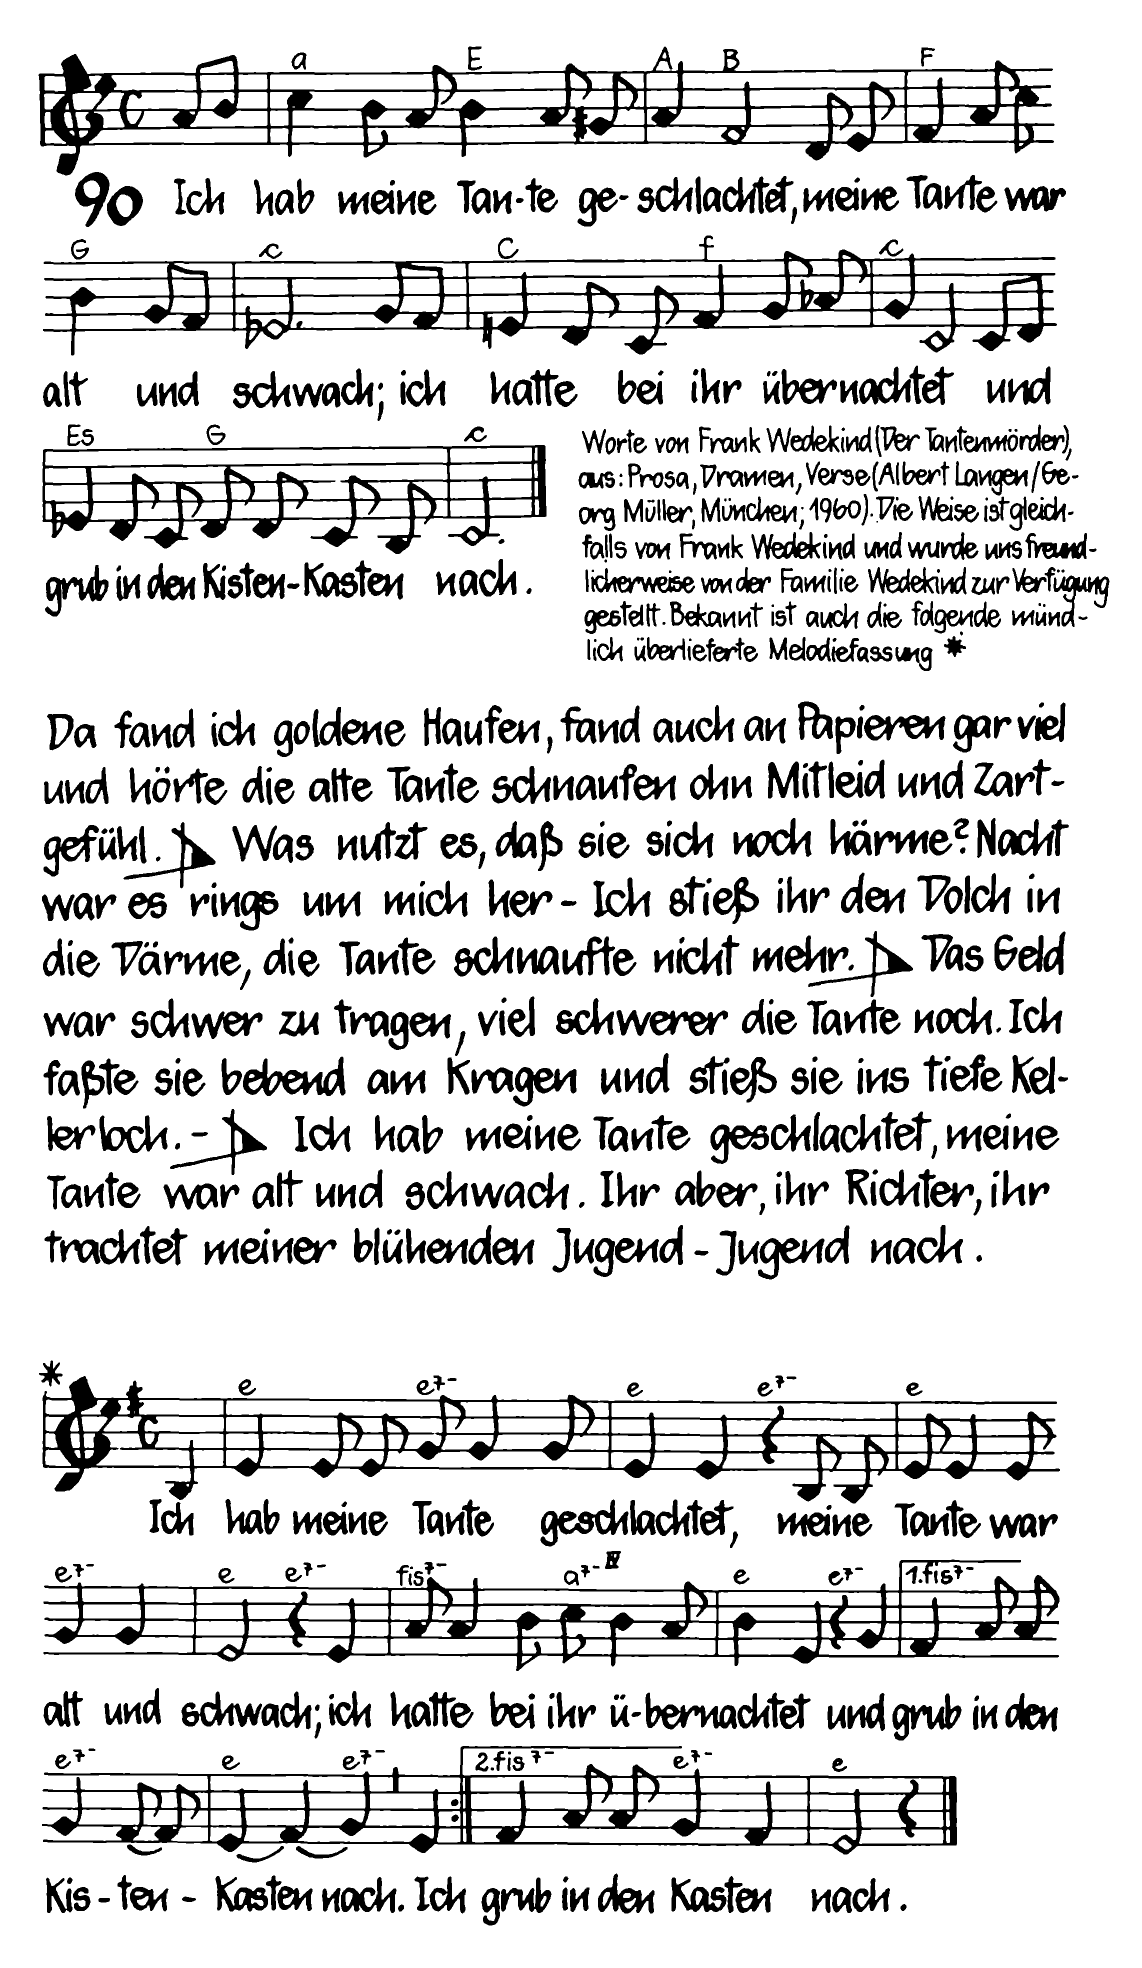 a E A B F
90 Ich hab meine Tan-te ge-schlachtet, meine Tante war
G c C f c
alt und schwach; ich hatte bei ihr übernachtet und
Es G c
grub in den Kisten-Kasten nach.
Worte von Frank Wedekind (Der Tantenmörder),
aus: Prosa, Dramen, Verse (Albert Langen/Ge-
org Müller, München; 1960). Die Weise ist gleich-
falls von Frank Wedekind und wurde uns freund-
licherweise von der Familie Wedekind zur Verfügung
gestellt. Bekannt ist auch die folgende münd-
lich überlieferte Melodiefassung *
Da fand ich goldene Haufen, fand auch an Papieren gar viel
und hörte die alte Tante schnaufen ohn Mitleid und Zart-
gefühl. Was nutzt es, daß sie sich noch härme? Nacht
war es rings um mich her - Ich stieß ihr den Dolch in
die Därme, die Tante schnaufte nicht mehr. Das Geld
war schwer zu tragen, viel schwerer die Tante noch. Ich
faßte sie bebend am Kragen und stieß sie ins tiefe Kel-
lerloch. - Ich hab meine Tante geschlachtet, meine
Tante war alt und schwach. Ihr aber, ihr Richter, ihr
trachtet meiner blühenden Jugend - Jugend nach.
* e e7- e e7- e
Ich hab meine Tante geschlachtet, meine Tante war
e7- e e7- fis7- a7- IV e e7- 1. fis7-
alt und schwach; ich hatte bei ihr ü-bernachtet und grub in den
e7- e e7- 2. fis7- e7- e
Kis-ten - Kasten nach. Ich grub in den Kasten nach.